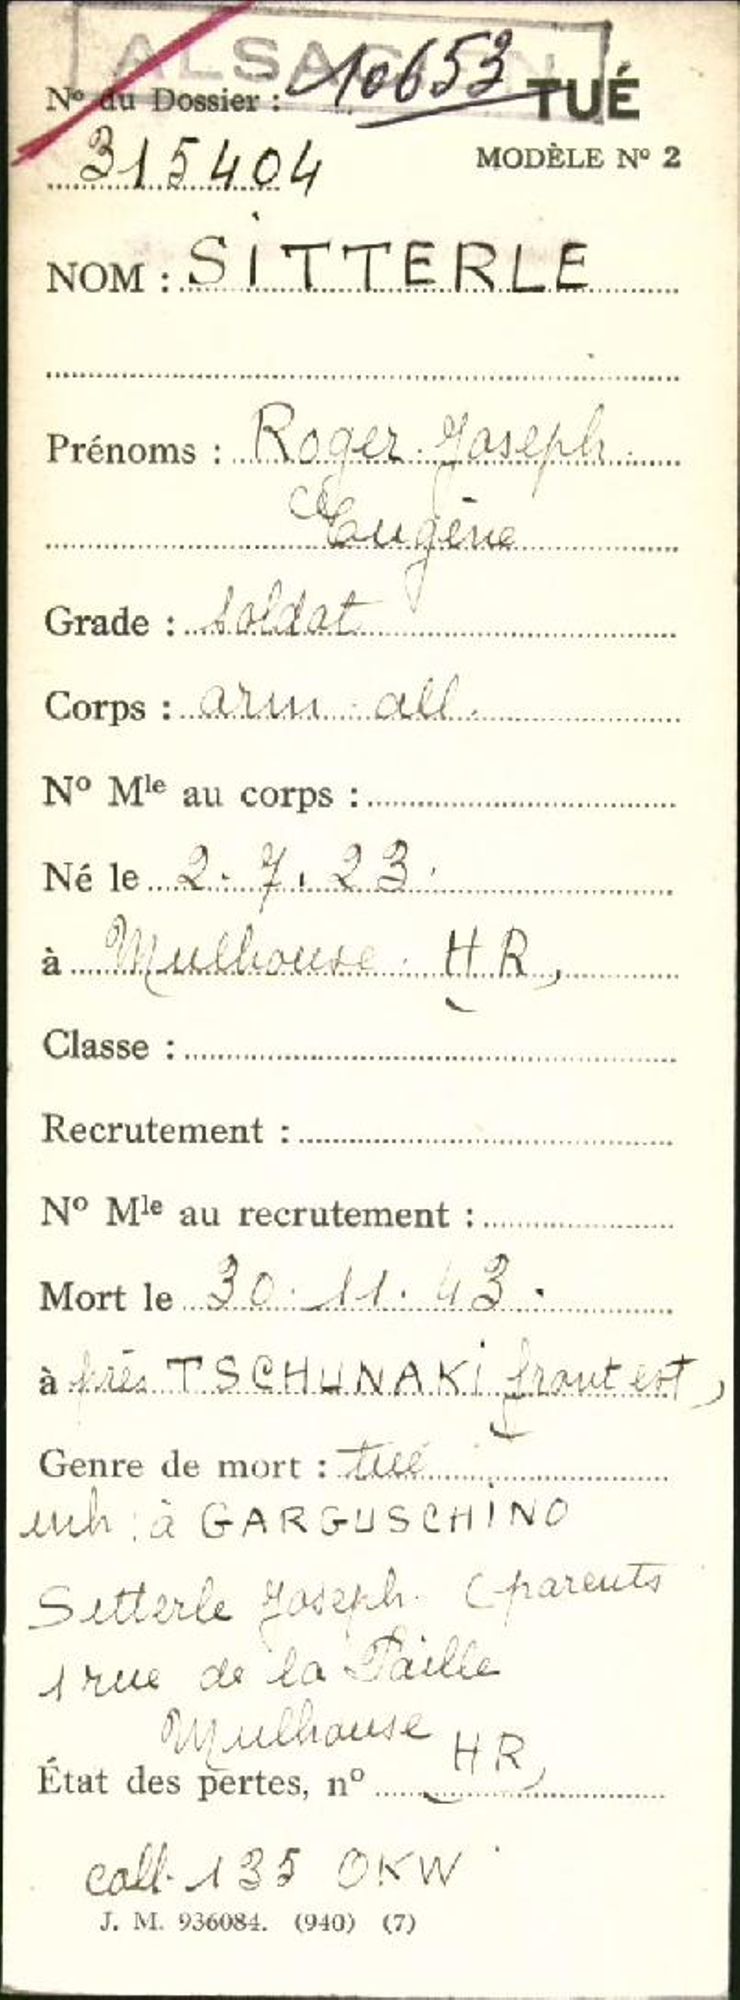 ALSACIEN
N° du Dossier : 10653 TUÉ
315404 MODÈLE N° 2
NOM : SITTERLE
Prénoms : Roger Joseph
Eugène
Grade : soldat
Corps : arm. all.
N° Mle au corps :
Né le 2.7.23.
à Mulhouse. HR,
Classe :
Recrutement :
N° Mle au recrutement :
Mort le 30.11.43.
à près TSCHUNAKI front est,
Genre de mort : tué
inh. à GARGUSCHINO
Sitterle Joseph. (parents
1 rue de la Paille
Mulhouse HR)
État des pertes, n°
coll. 135 OKW
J. M. 936084. (940) (7)